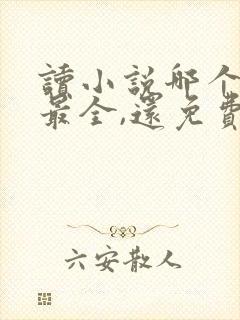 讀小說哪个
最全,還免費
六安散人